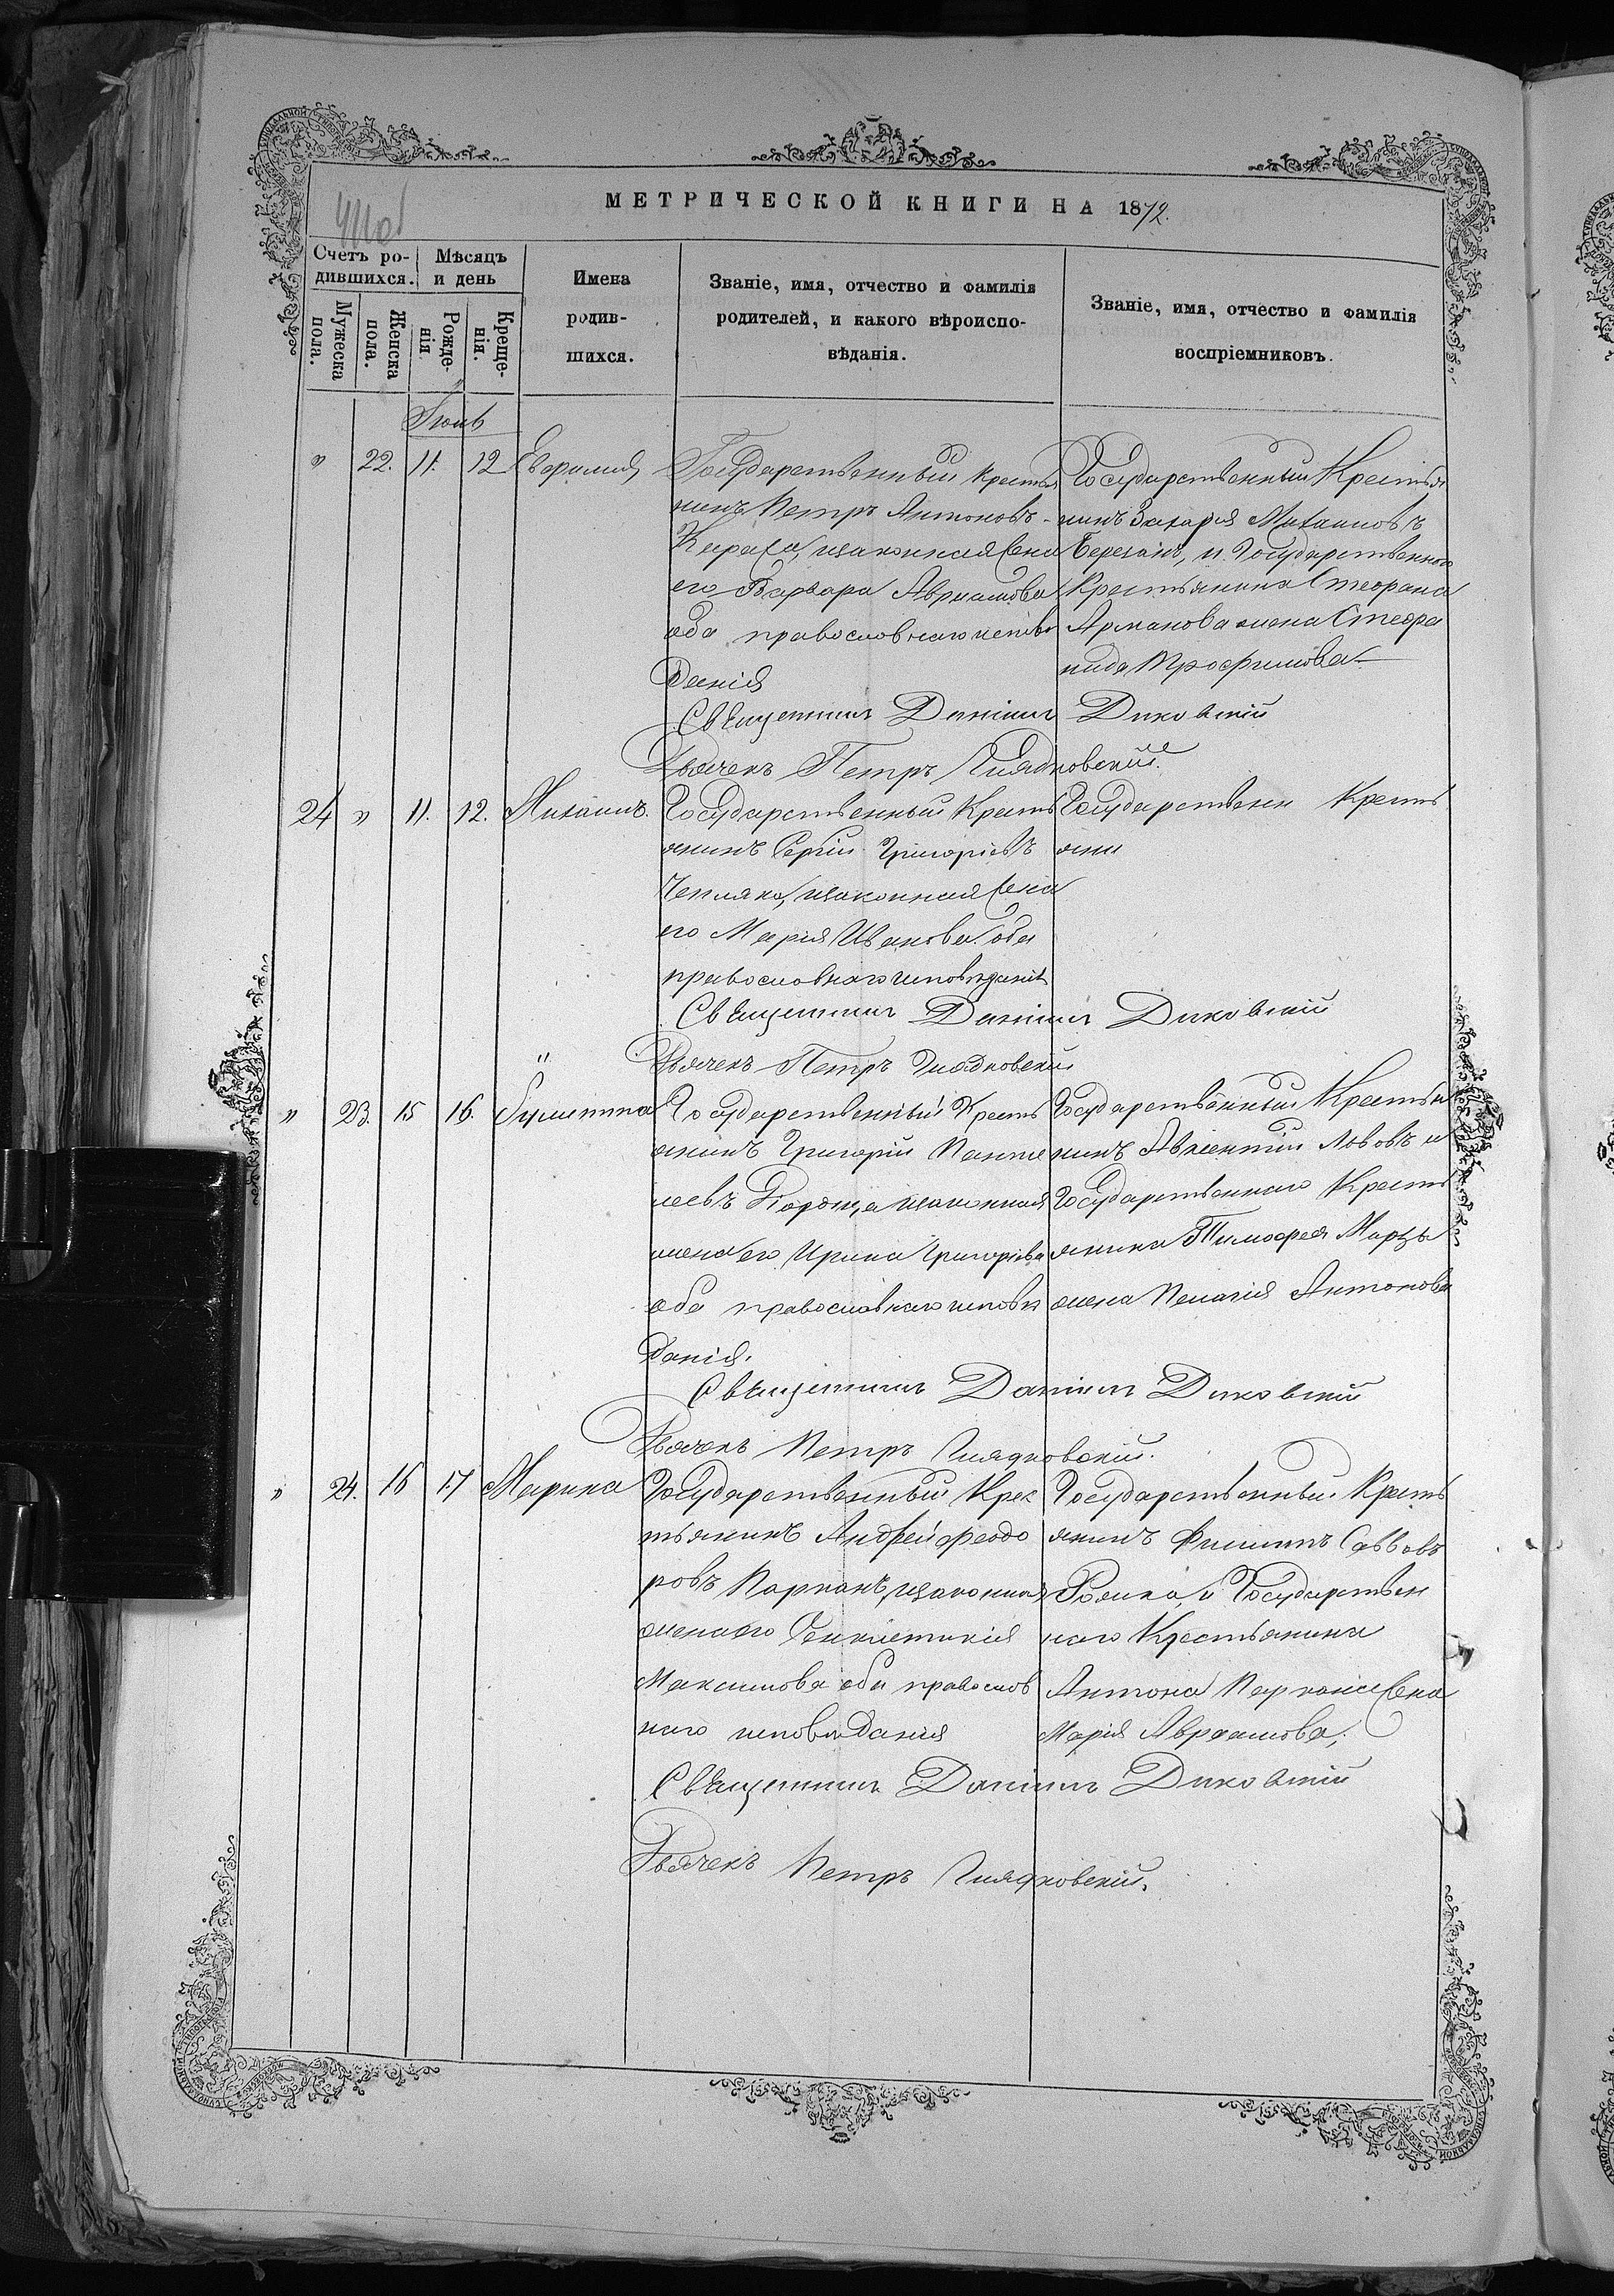 МЕТРИЧЕСКОЙ КНИГИ НА 1872.
Счетъ ро-
дившихся.
Мѣсяцъ
и день
Имена
родив-
шихся.
Званіе, имя, отчество и фамилія
родителей, и какого вѣроиспо-
вѣданія.
Званіе, имя, отчество и фамилія
воспріемниковъ.
Мужеска
пола.
Женска
пола.
Рожде-
нія
Креще-
нія.
" 22. 11. 12 Евфимія
Государственный Крестья
нинъ Петръ Антоновъ
законная жена
его Варвара Авраамова
оба православнаго испове
данія
Государственный Крестья
нинъ Захарія Михаиловъ
и Государственнаго
Крестьянина Стефана
жена Стефа
нида Трофимова
Священникъ Даніилъ Диковскій
Дьячекъ Петръ Гнядковскій
24 " 11. 12. Михаилъ.
Государственный Кресть
янинъ Сергій Григоріевъ
законная жена
его Марія Иванова оба
православнаго исповѣданія
Государственн Кресть
янин
Священникъ Даніилъ Диковскій
Дьячекъ Петръ Гнядковскій
" 23. 15 16. Іулитта
Государственный Кресть
янинъ Григорій Панте
леевъ законная
жена его Ирина Григорьева
оба православнаго исповѣ
данія.
Государственный Крестья
нинъ Авксентій и
Государственнаго Кресть
янина Тимофея
жена Пелагія Антонова
Священникъ Даніилъ Диковскій
Дьячекъ Петръ Гнядковскій.
" 24. 16 17 Марина
Государственный Крес
тьянинъ Андрей Феодо
ровъ Парканъ, законная
жена его
Максимова оба православ
наго исповѣданія
Государственный Кресть
янинъ Филиппъ Савовъ
и Государствен
наго Крестьянина
Антона Паркана жена
Марія Авраамова.
Священникъ Даніилъ Диковскій
Дьячекъ Петръ Гнядковскій.